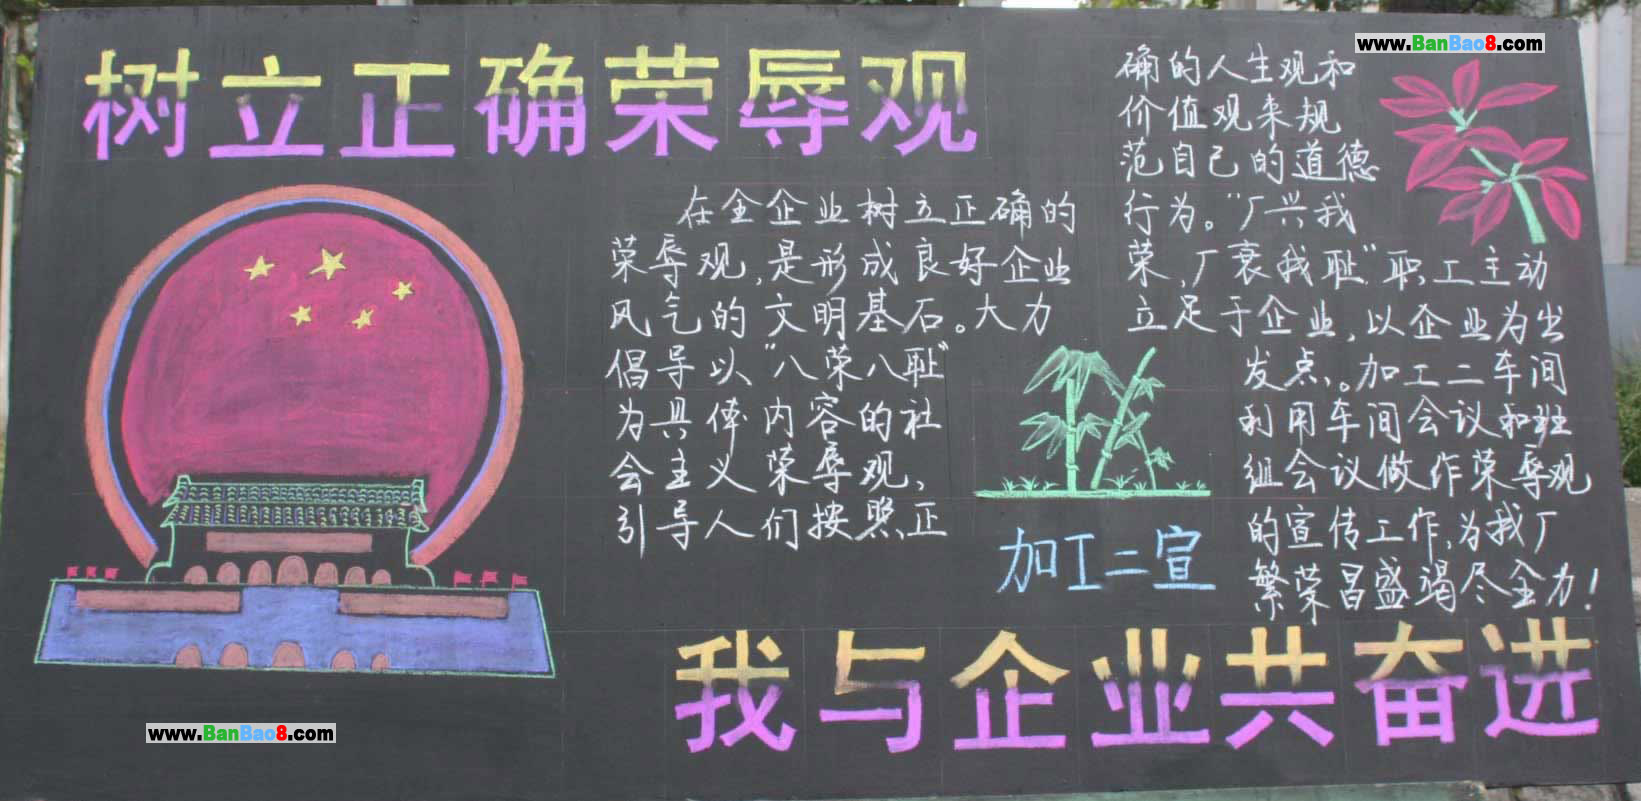 树立正确荣辱观
在全企业树立正确的
荣辱观,是形成良好企业
风气的文明基石。大力
倡导以"八荣八耻"
为具体内容的社
会主义荣辱观,
引导人们按照正
确的人生观和
价值观来规
范自己的道德
行为。"厂兴我
荣,厂衰我耻"职工主动
立足于企业,以企业为出
发点。加工二车间
利用车间会议和班
组会议做作荣辱观
的宣传工作,为我厂
繁荣昌盛竭尽全力!
加工二宣
我与企业共奋进
www.BanBao8.com
www.BanBao8.com